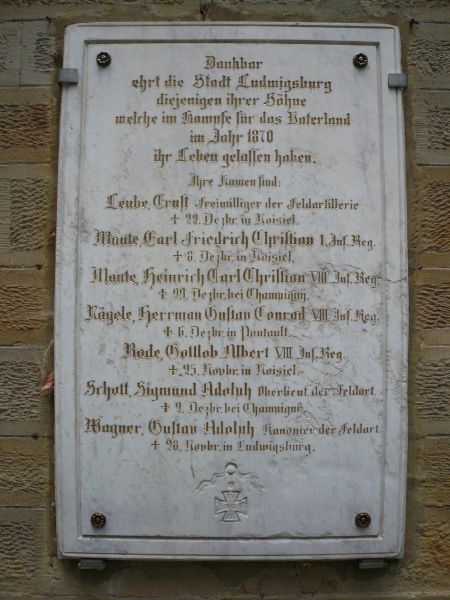 Dankbar
ehrt die Stadt Ludwigsburg
diejenigen ihrer Söhne
welche im Kampfe für das Vaterland
im Jahr 1870
ihr Leben gelassen haben.
Ihre Namen sind:
Leube, Ernst Freiwilliger der Feldartillerie
† 22. Dezbr. in Noisiel.
Maute, Carl Friedrich Christian I. Inf. Reg.
† 8. Dezbr. in Noisiel.
Maute, Heinrich Carl Christian VIII. Inf. Reg.
† Dezbr. bei Champigny.
Nägele, Herrman Gustav Conrad VIII. Inf. Reg.
† 6. Dezbr. in Pontault.
Rode, Gottlob Albert VIII. Inf. Reg.
† 25. Novbr. in Noisiel.
Schott, Sigmund Adolph Oberleut. der Feldart.
† 2. Dezbr. bei Champigny.
Wagner, Gustav Adolph Kanonier der Feldart.
† 28. Novbr. in Ludwigsburg.